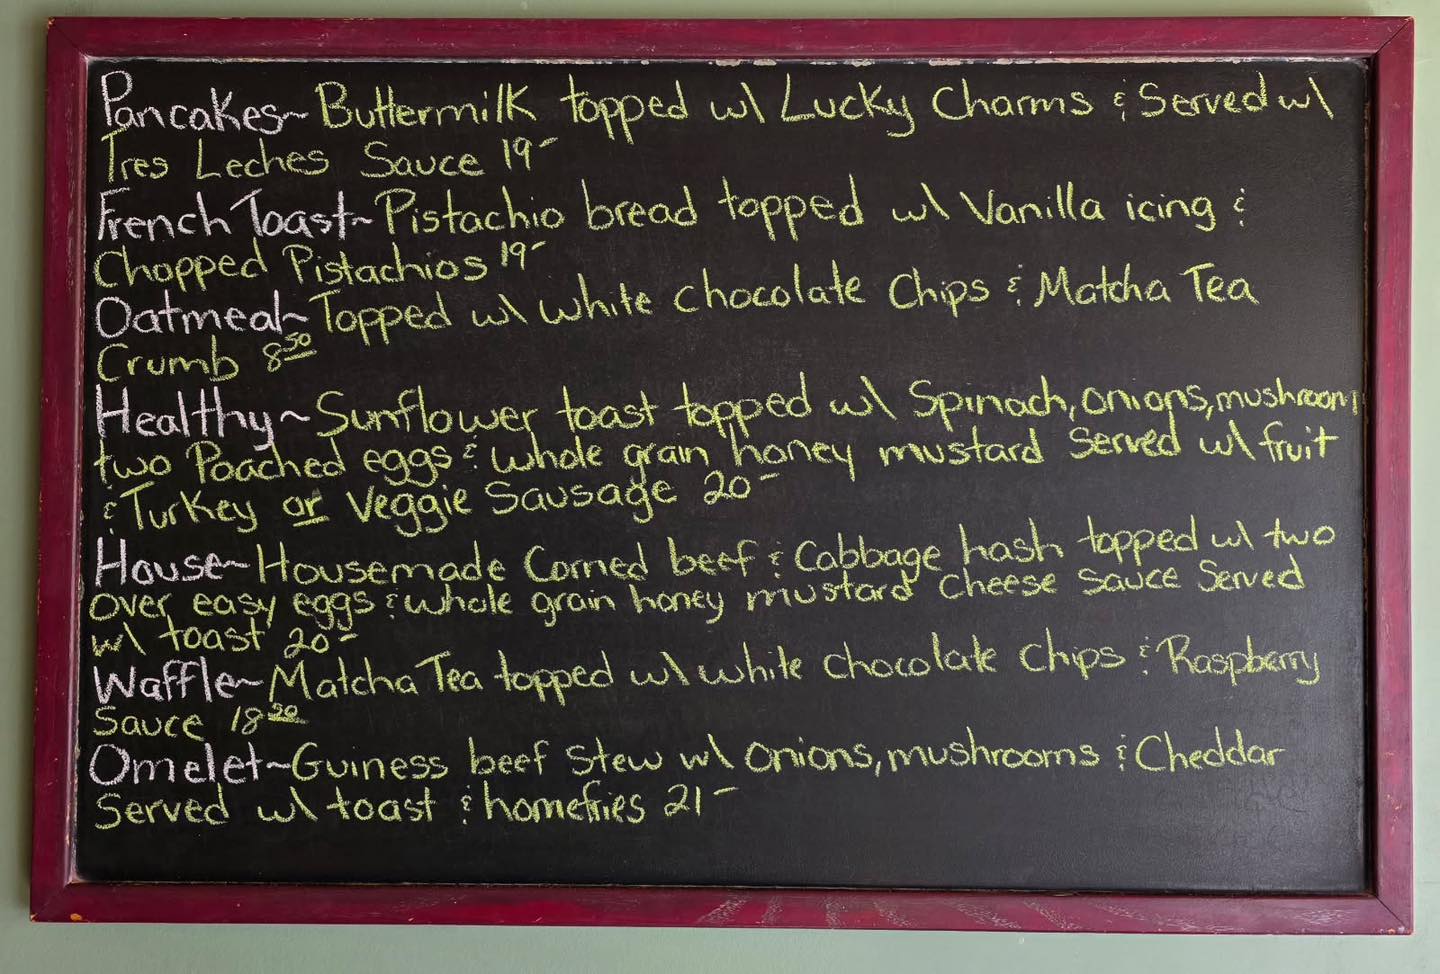 Pancakes~ Buttermilk topped w/ Lucky Charms & Served w/
Tres Leches Sauce 19-
French Toast~ Pistachio bread topped w/ Vanilla icing &
Chopped Pistachios 19-
Oatmeal~ Topped w/ white chocolate Chips & Matcha Tea
Crumb 8.50
Healthy~ Sunflower toast topped w/ Spinach, onions, mushroom,
two Poached eggs & whole grain honey mustard Served w/ fruit
& Turkey or Veggie Sausage 20-
House~ Housemade Corned beef & Cabbage hash topped w/ two
over easy eggs & whole grain honey mustard Cheese sauce Served
w/ toast 20-
Waffle~ Matcha Tea topped w/ white chocolate Chips & Raspberry
Sauce 18.50
Omelet~ Guiness beef Stew w/ onions, mushrooms & Cheddar
Served w/ toast & homefries 21-